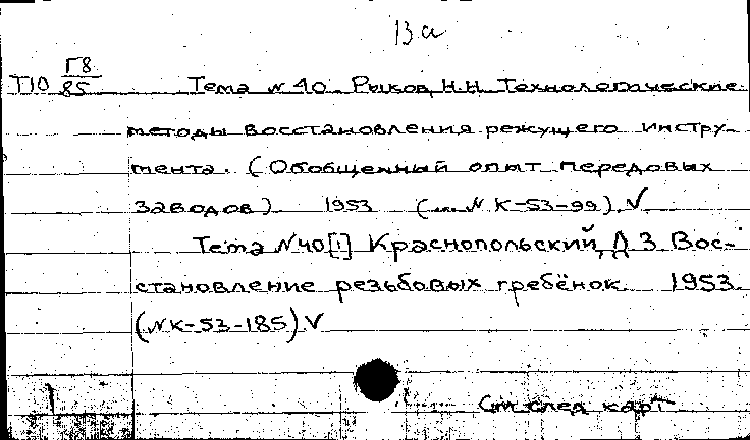 13а
Г8
Т10 85 Тема № 40. Рыков, Н.Н. Технологические
методы восстановления режущего инстру-
мента. (Обобщенный опыт передовых
заводов). 1953 (№ К-53-99). V
Тема №40[1] Краснопольский, Д З. Вос-
становление резьбовых гребёнок. 1953.
(№К-53-185) V
См след карт